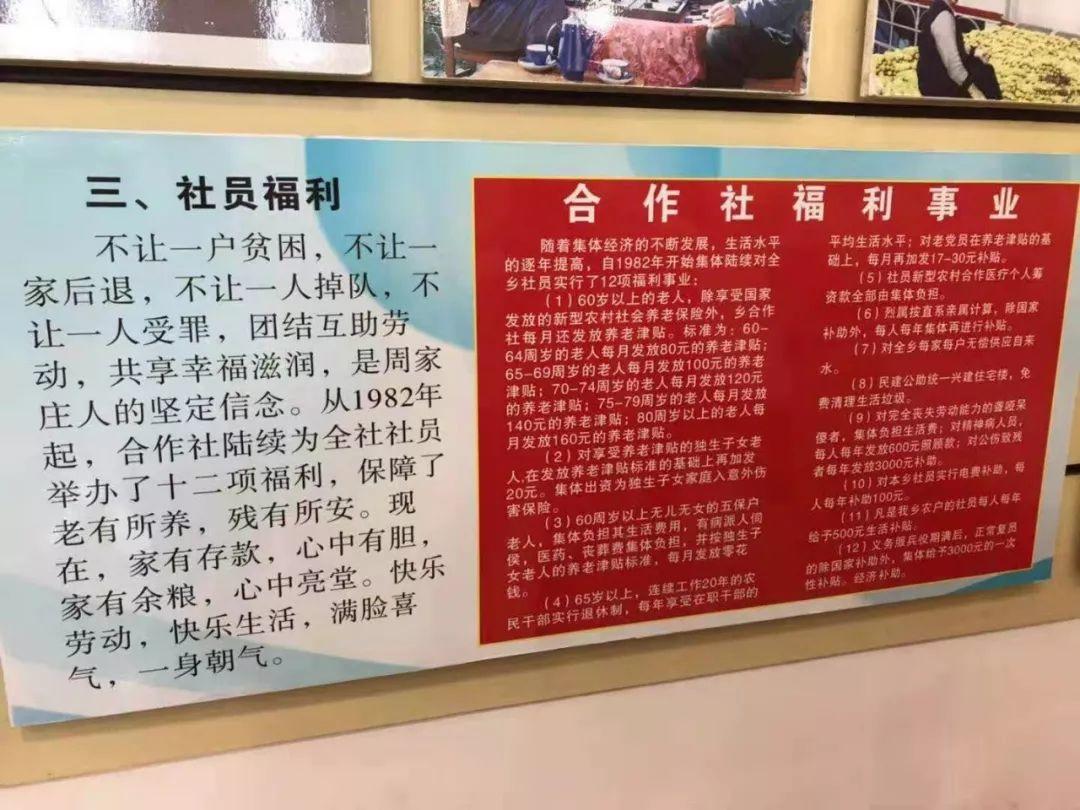 三、社员福利
不让一户贫困，不让一
家后退，不让一人掉队，不
让一人受罪，团结互助劳
动，共享幸福滋润，是周家
庄人的坚定信念。从1982年
起，合作社陆续为全社社员
举办了十二项福利，保障了
老有所养，残有所安。现
在，家有存款，心中有胆，
家有余粮，心中亮堂。快乐
劳动，快乐生活，满脸喜
气，一身朝气。
合作社福利事业
随着集体经济的不断发展，生活水平
的逐年提高，自1982年开始集体陆续对全
乡社员实行了12项福利事业：
（1）60岁以上的老人，除享受国家
发放的新型农村社会养老保险外，乡合作
社每月还发放养老津贴。标准为：60-
64周岁的老人每月发放80元的养老津贴；
65-69周岁的老人每月发放100元的养老
津贴；70-74周岁的老人每月发放120元
的养老津贴；75-79周岁的老人每月发放
140元的养老津贴；80周岁以上的老人每
月发放160元的养老津贴。
（2）对享受养老津贴的独生子女老
人，在发放养老津贴标准的基础上再加发
20元。集体出资为独生子女家庭入意外伤
害保险。
（3）60周岁以上无儿无女的五保户
老人，集体负担其生活费用，有病派人伺
侯，医药、丧葬费集体负担，并按独生子
女老人的养老津贴标准，每月发放零花
钱。
（4）65岁以上，连续工作20年的农
民干部实行退休制，每年享受在职干部的
平均生活水平；对老党员在养老津贴的基
础上，每月再加发17-30元补贴。
（5）社员新型农村合作医疗个人筹
资款全部由集体负担。
（6）烈属按直系亲属计算，除国家
补助外，每人每年集体再进行补贴。
（7）对全乡每家每户无偿供应自来
水。
（8）民建公助统一兴建住宅楼，免
费清理生活垃圾。
（9）对完全丧失劳动能力的聋哑呆
傻者，集体负担生活费；对精神病人员，
每人每年发放600元照顾款；对公伤致残
者每年发放3000元补助。
（10）对本乡社员实行电费补助，每
人每年补助100元。
（11）凡是我乡农户的社员每人每年
给予500元生活补贴。
（12）义务服兵役期满后，正常复员
的除国家补助外，集体给予3000元的一次
性补贴。经济补助。